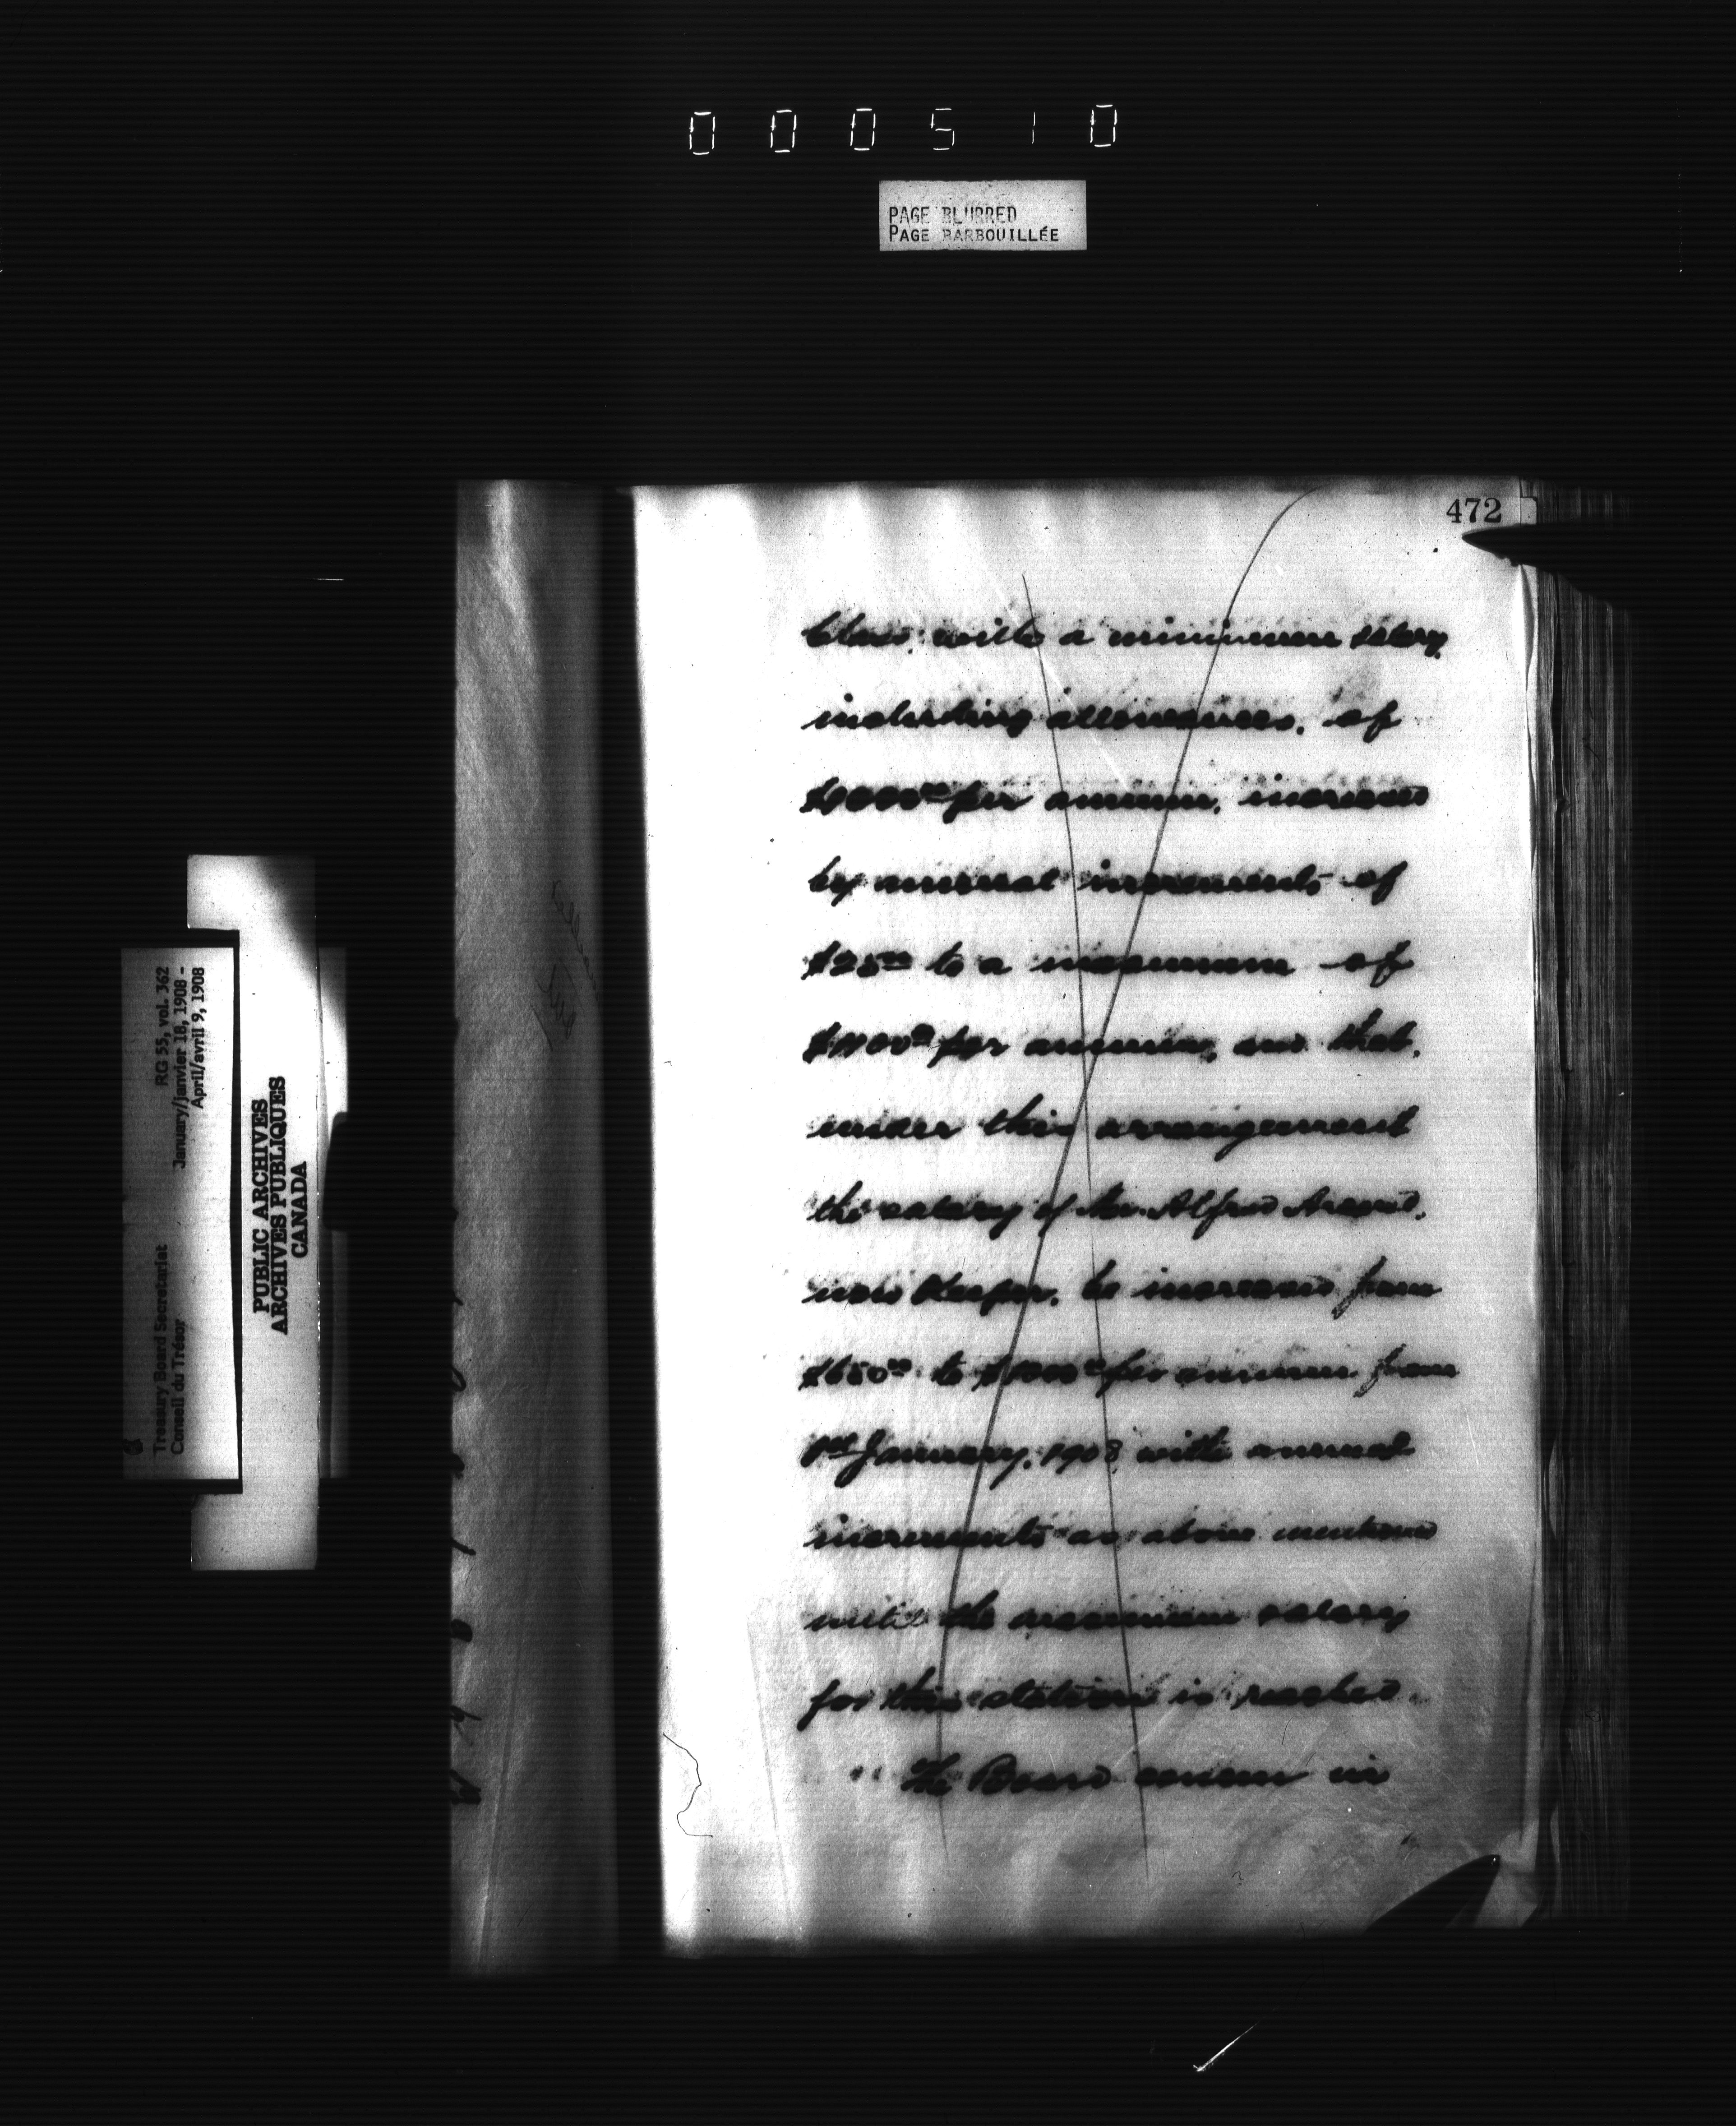 000510
PAGE BLURRED
PAGE BARBOUILLÉE
472
Class, with a minimum salary,
including allowances, of
$1000⁰⁰ per annum, increased
by annual increments of
$25⁰⁰ to a maximum of
$1100⁰⁰ per annum, and that,
under this arrangement
the salary of Mr. Alfred
now Keeper, be increased from
$650⁰⁰ to $1000⁰⁰ per annum from
1st January, 1908, with annual
increments as above mentioned
until the maximum salary
for this station is reached.
The Board concur in
Treasury Board Secretariat
Conseil du Trésor
RG 55, vol. 362
January/janvier 18, 1908 -
April/avril 9, 1908
PUBLIC ARCHIVES
ARCHIVES PUBLIQUES
CANADA